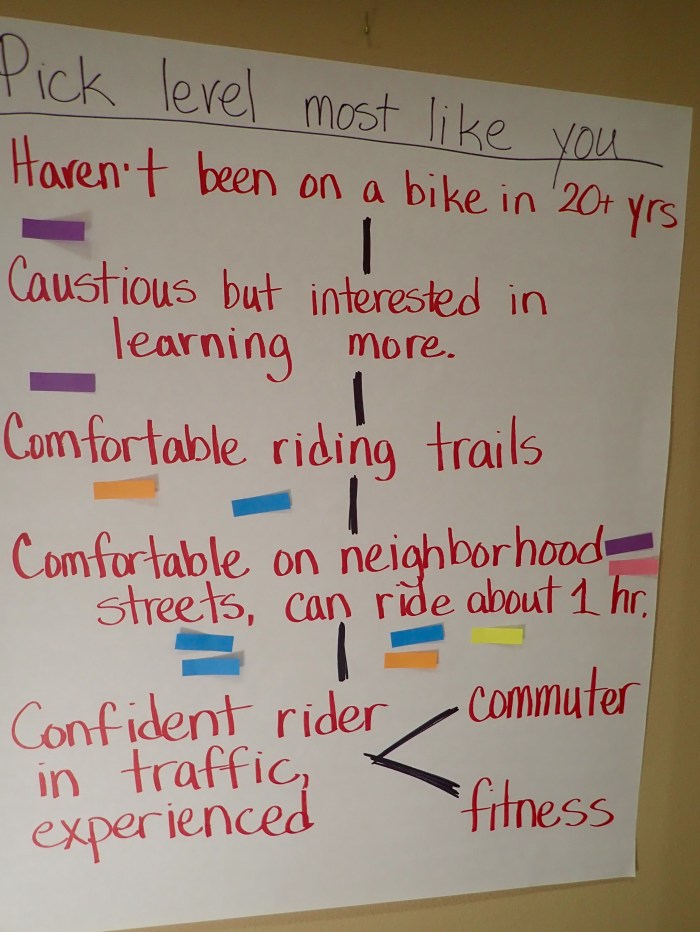 Pick level most like you
Haven't been on a bike in 20+ yrs
Caustious but interested in
learning more.
Comfortable riding trails
Comfortable on neighborhood
streets, can ride about 1 hr.
Confident rider
in traffic,
experienced
commuter
fitness